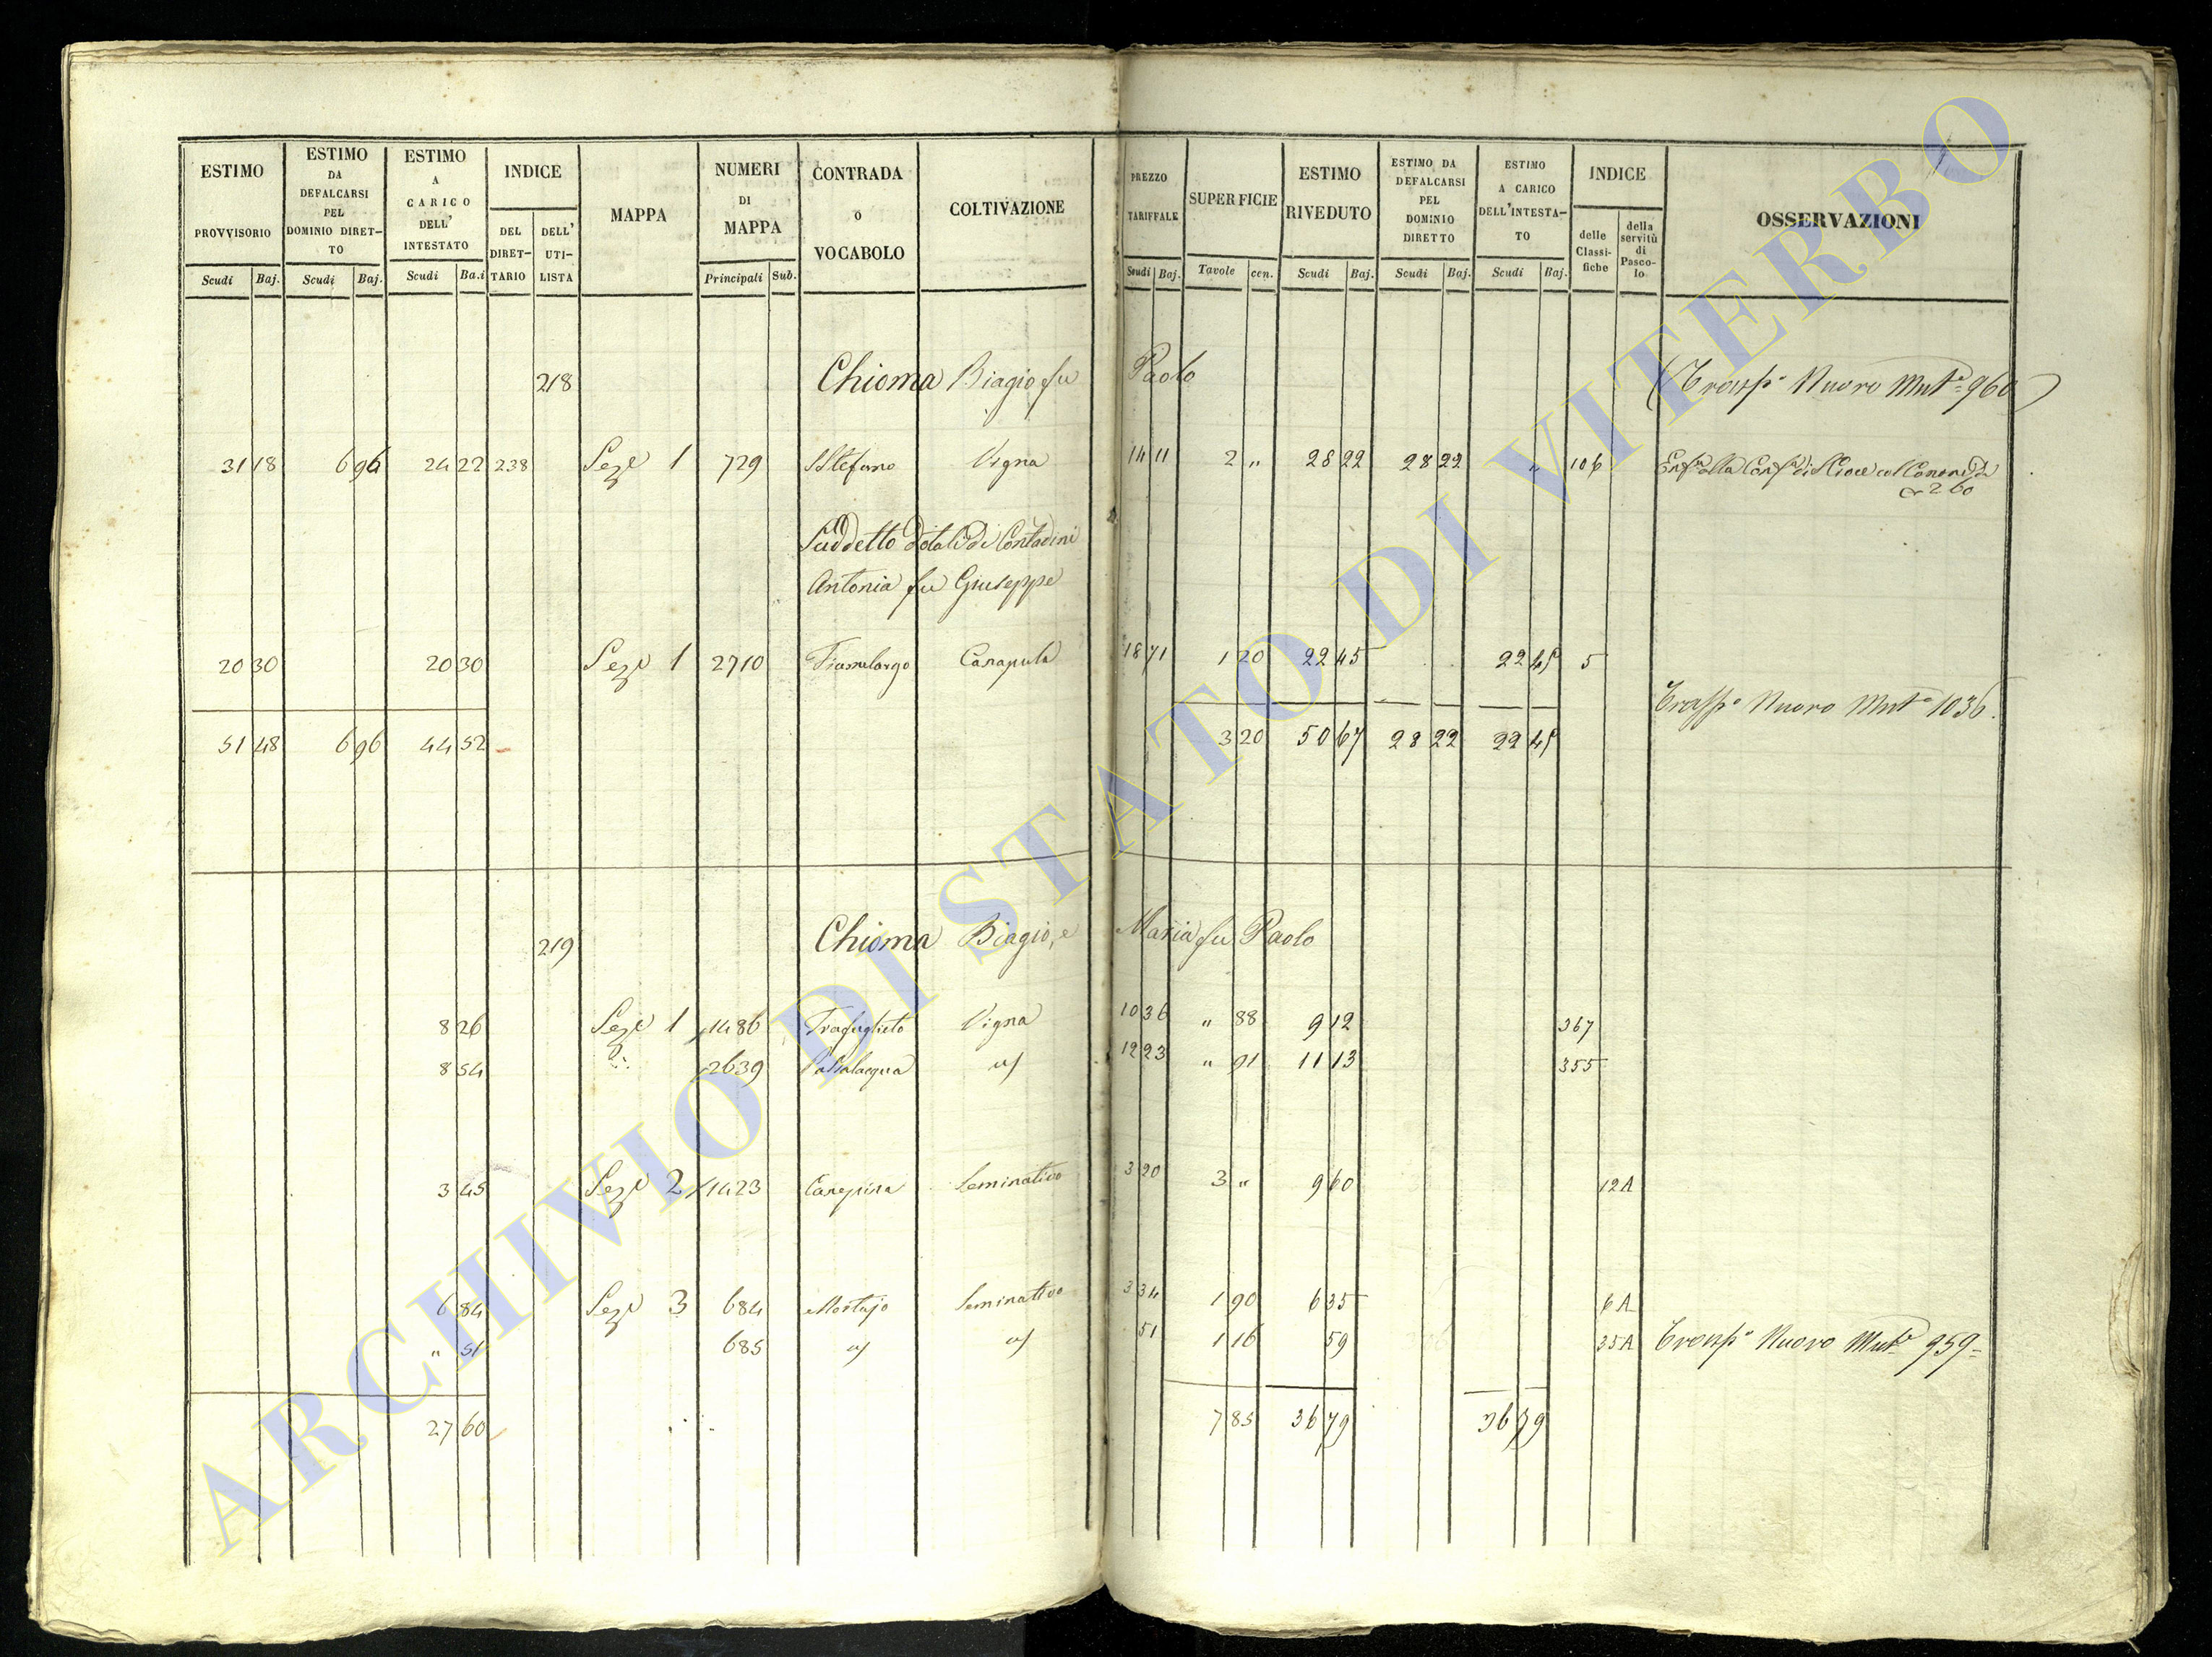 ESTIMO PROVVISORIO
ESTIMO DA DEFALCARSI PEL DOMINIO DIRET-TO
ESTIMO A CARICO DELL' INTESTATO
INDICE
DEL DIRET-TARIO
DELL' UTI-LISTA
MAPPA
NUMERI DI MAPPA
CONTRADA O VOCABOLO
COLTIVAZIONE
PREZZO TARIFFALE
SUPERFICIE
ESTIMO RIVEDUTO
ESTIMO DA DEFALCARSI PEL DOMINIO DIRETTO
ESTIMO A CARICO DELL'INTESTA-TO
INDICE
delle Classi-fiche
della servitù di Pasco-lo
OSSERVAZIONI
Scudi Baj. Scudi Baj. Scudi Ba.i Principali Sub. Scudi Baj. Tavole cen. Scudi Baj. Scudi Baj. Scudi Baj.
218 Chioma Biagio fu Paolo (Trasp.o Nuovo Mut.e 960)
31 18 6 96 24 22 238 Sez.e 1 729 S Stefano Vigna 14 11 2 " 28 22 28 22 " 106
2 60
Suddetto dotali di Contadini
Antonia fu Giuseppe
20 30 20 30 Sez.e 1 2710 Canapula 18 71 1 20 22 45 22 45 5
Trasp.o Nuovo Mut.e 1036.
51 48 6 96 44 52 3 20 50 67 28 22 22 45
219 Chioma Biagio, e Maria fu Paolo
8 26 Sez.e 1 1486 Vigna 10 36 " 88 9 12 367
8 54 2639 Passalacqua 12 23 " 91 11 13 355
3 45 Sez.e 2 1423 Canepina Seminativo 3 20 3 " 9 60 12A
6 84 Sez.e 3 684 Mortajo Seminativo 3 34 1 90 6 35 6A
" 51 685 51 1 16 59 35A Trasp.o Nuovo Mut.e 959-
27 60 7 85 36 79 36 79
ARCHIVIO DI STATO DI VITERBO